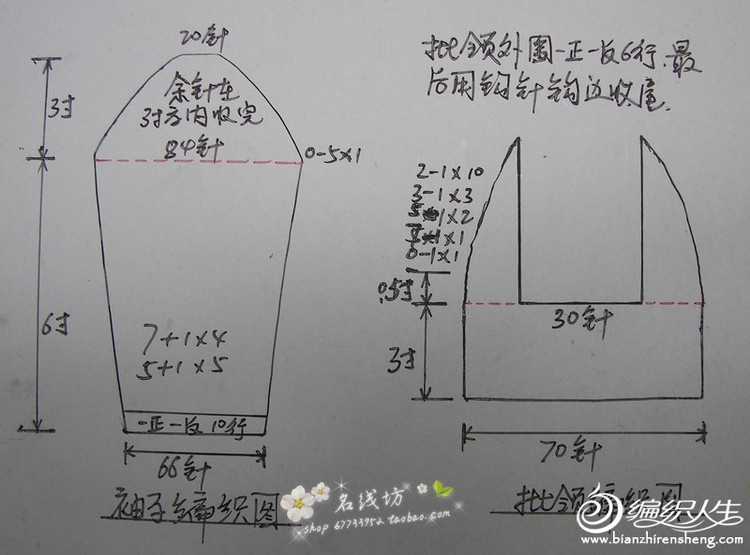 20针
3寸
余针在
3寸方内收完
84针
0-5×1
6寸
7+1×4
5+1×5
一正一反10行
66针
袖子编织图
批领外圈一正一反6行.最
后用钩针钩边收尾.
2-1×10
3-1×3
5-1×2
0-1×1
0.5寸
30针
3寸
70针
批领编织图
名线坊
shop 67733952 taobao.com
编织人生
www.bianzhirensheng.com